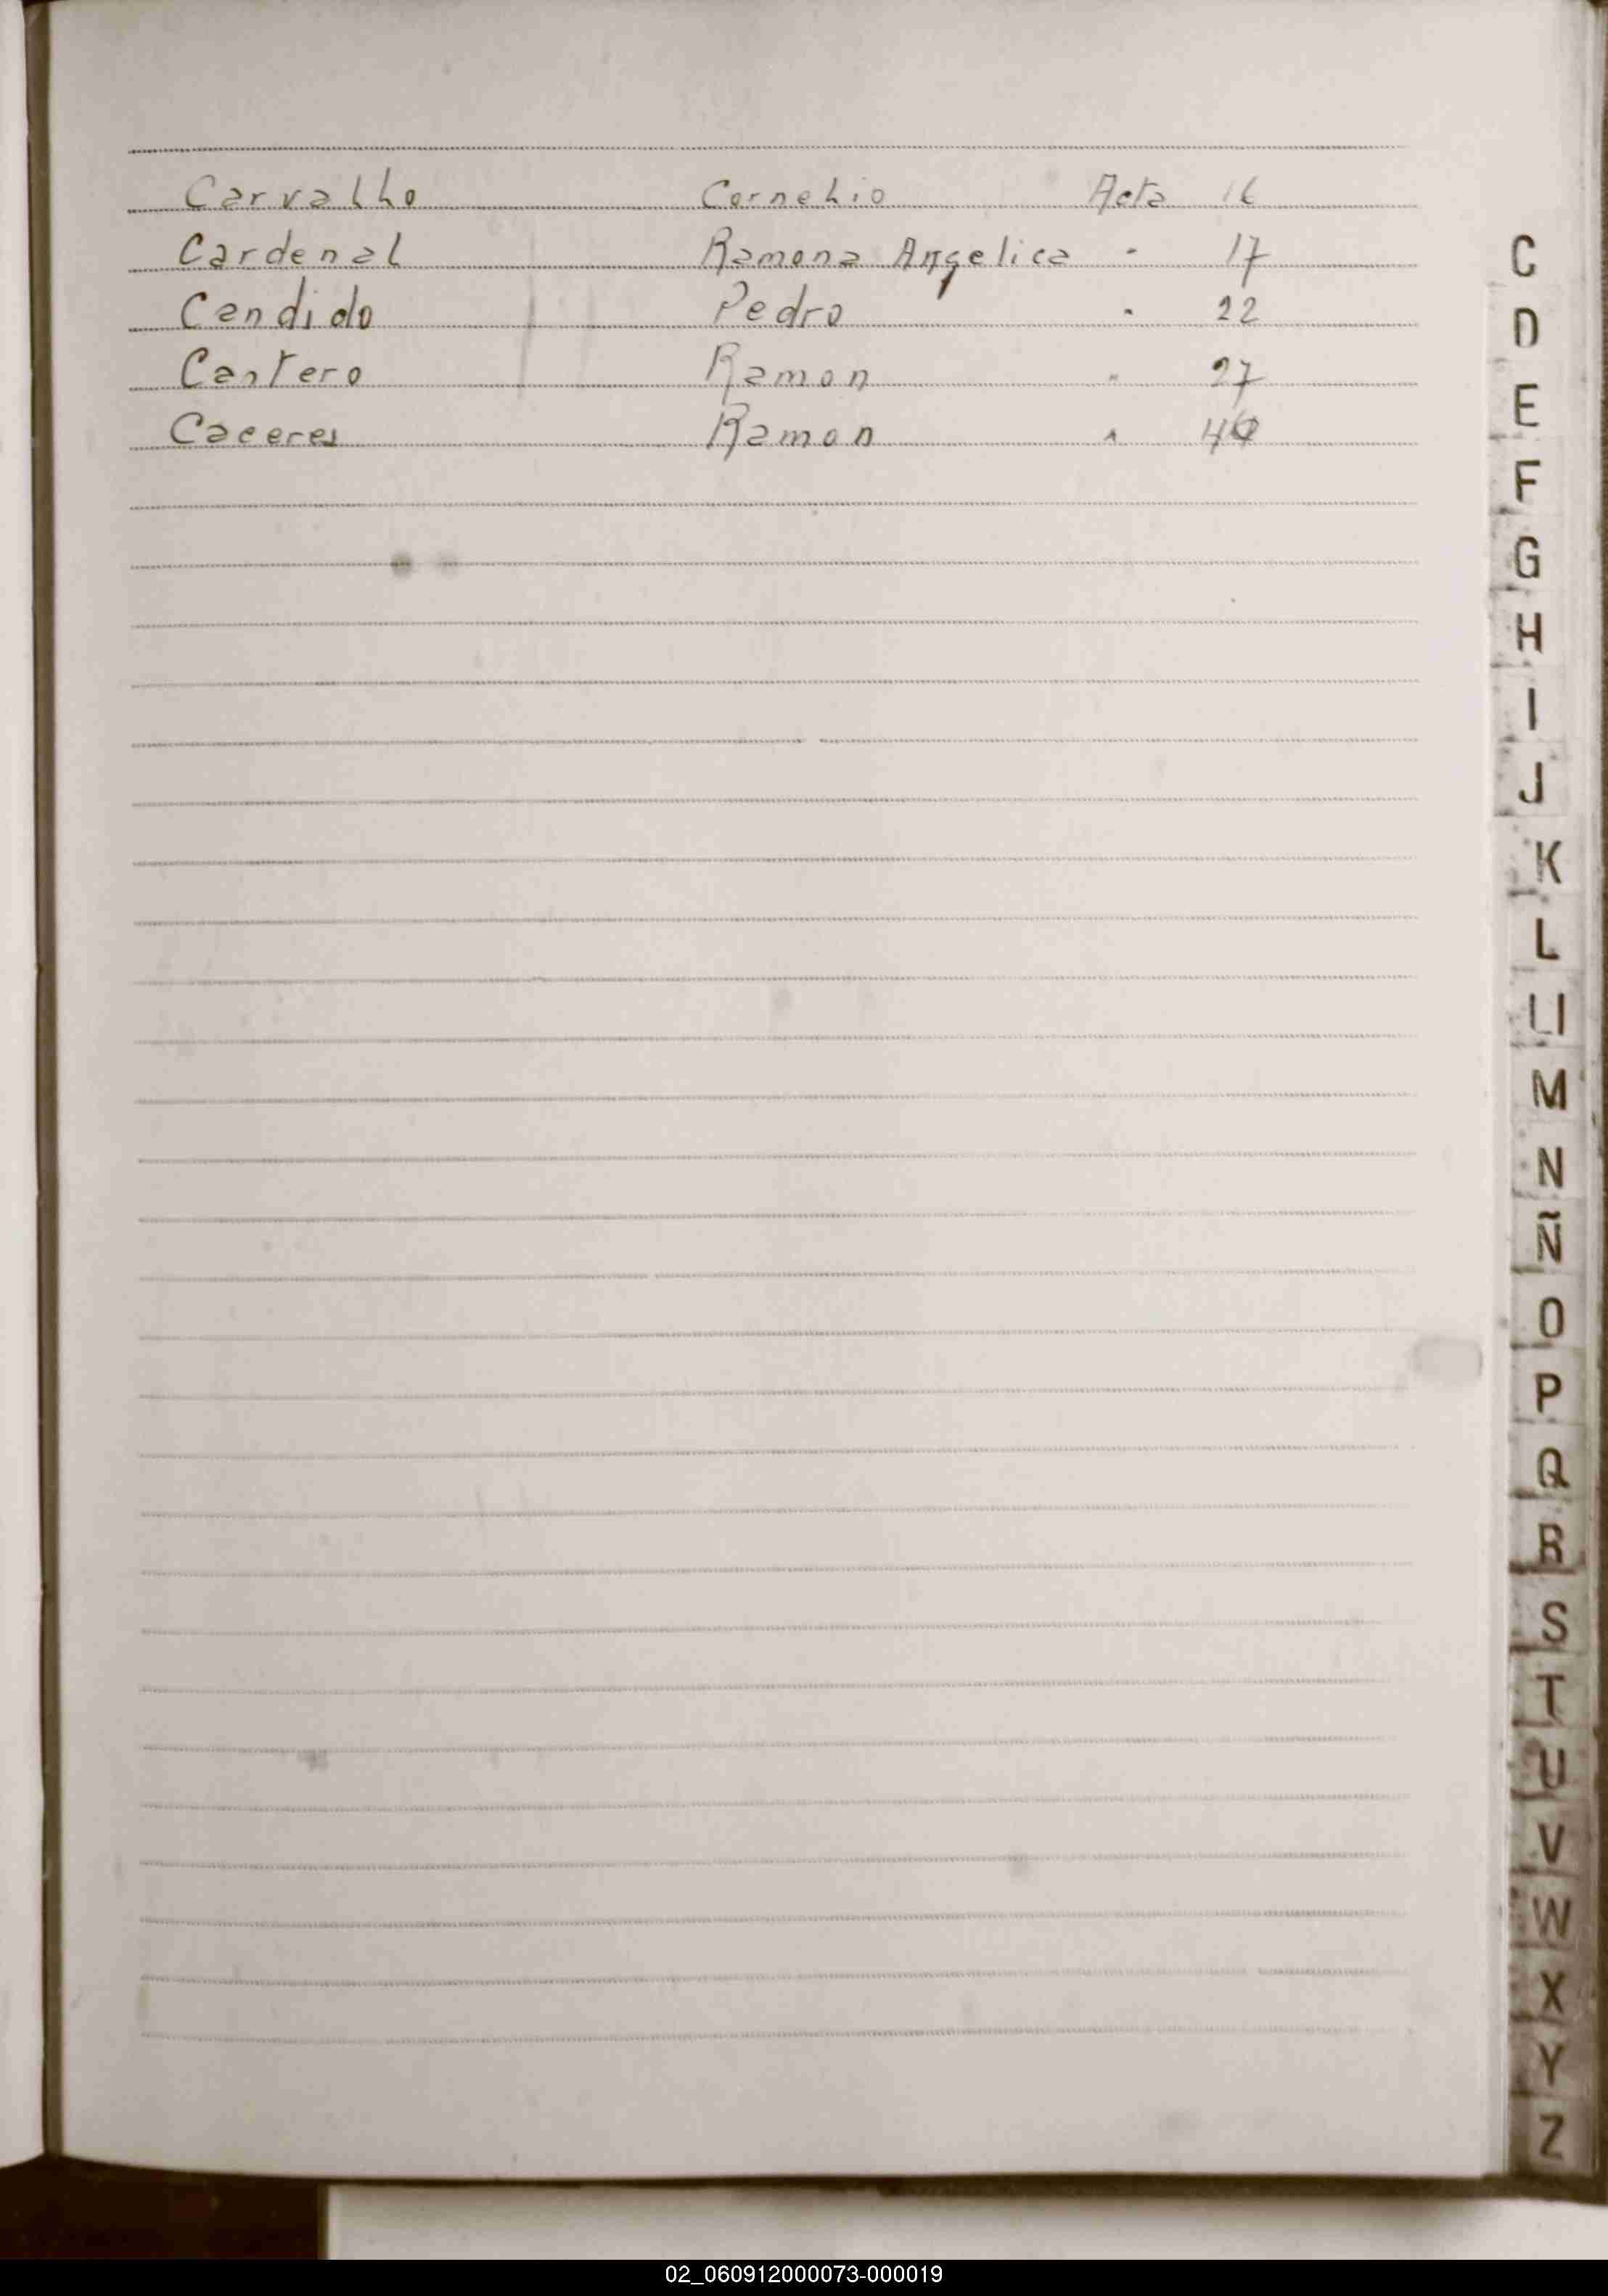 Carvalho Cornelio Acta 16
Cardenal Ramona Angelica " 17
Candido Pedro " 22
Cantero Ramon " 27
Caceres Ramon "
C
D
E
F
G
H
I
J
K
L
Ll
M
N
Ñ
O
P
Q
R
S
T
U
V
W
X
Y
Z
02_060912000073-000019